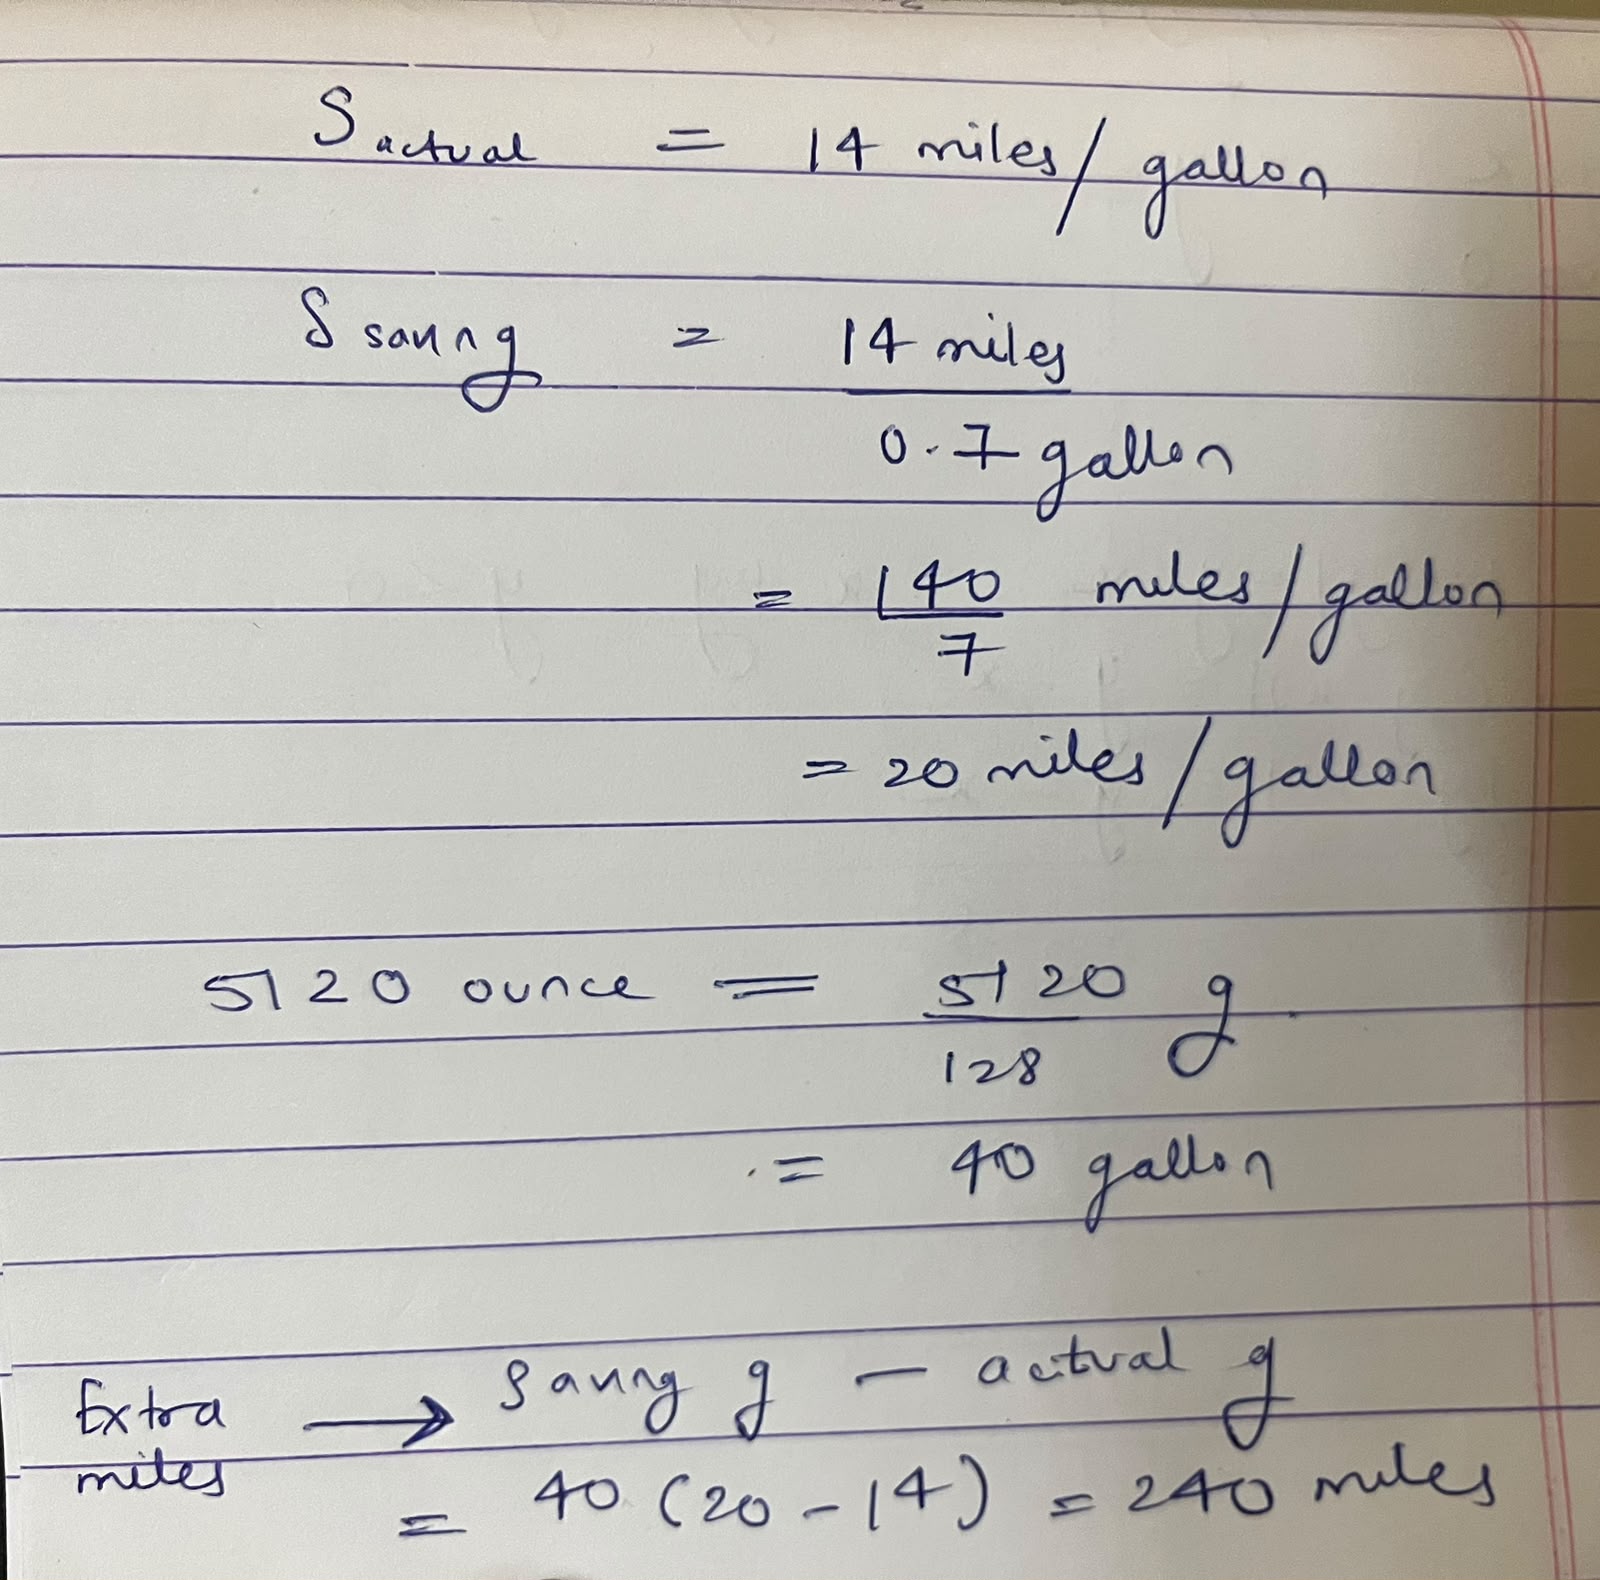 S actual = 14 miles / gallon
S saving = 14 miles
0.7 gallon
= 140 miles / gallon
7
= 20 miles / gallon
5120 ounce = 5120 g
128
= 40 gallon
Extra miles → saving g - actual g
= 40 (20 - 14) = 240 miles